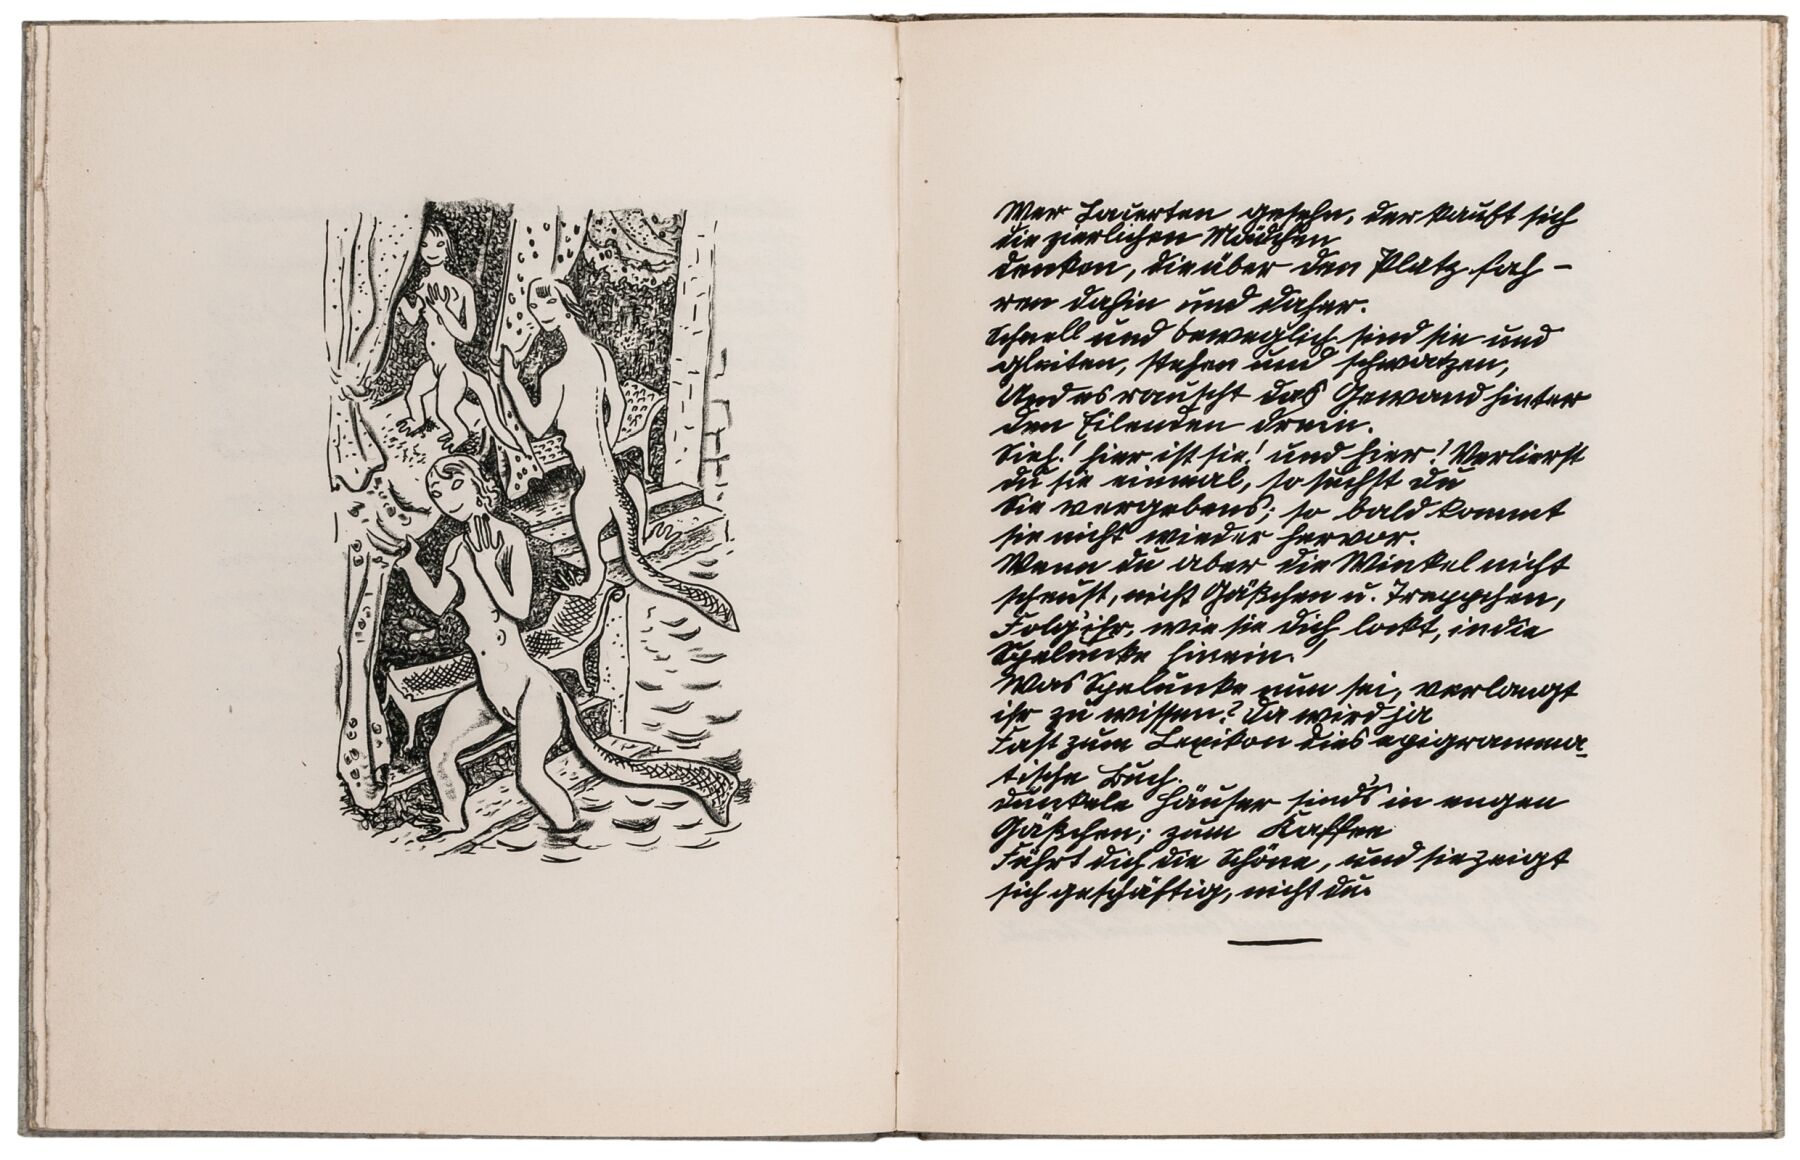 Wer Lacerten gesehn, der kann sich
die zierlichen Mädchen
denken, die über den Platz fah-
ren dahin und daher.
Schnell und beweglich sind sie und
gleiten, stehen und schwatzen,
Und es rauscht das Gewand hinter
den Eilenden drein.
Sieh! hier ist sie! und hier! Verlierst
du sie einmal, so suchst du
Sie vergebens; so bald kommt
sie nicht wieder hervor.
Wenn du aber die Winkel nicht
scheust, nicht Gäßchen u. Treppchen,
Folg' ihr, wie sie dich lockt, in die
Spelunke hinein.
Was Spelunke nun sei, verlangt
ihr zu wissen? Da wird ja
Fast zum Lexikon dies epigramma-
tische Buch.
Dunkele Häuser sind's in engen
Gäßchen; zum Kaffee
Führt dich die Schöne, und sie zeigt
sich geschäftig, nicht du.